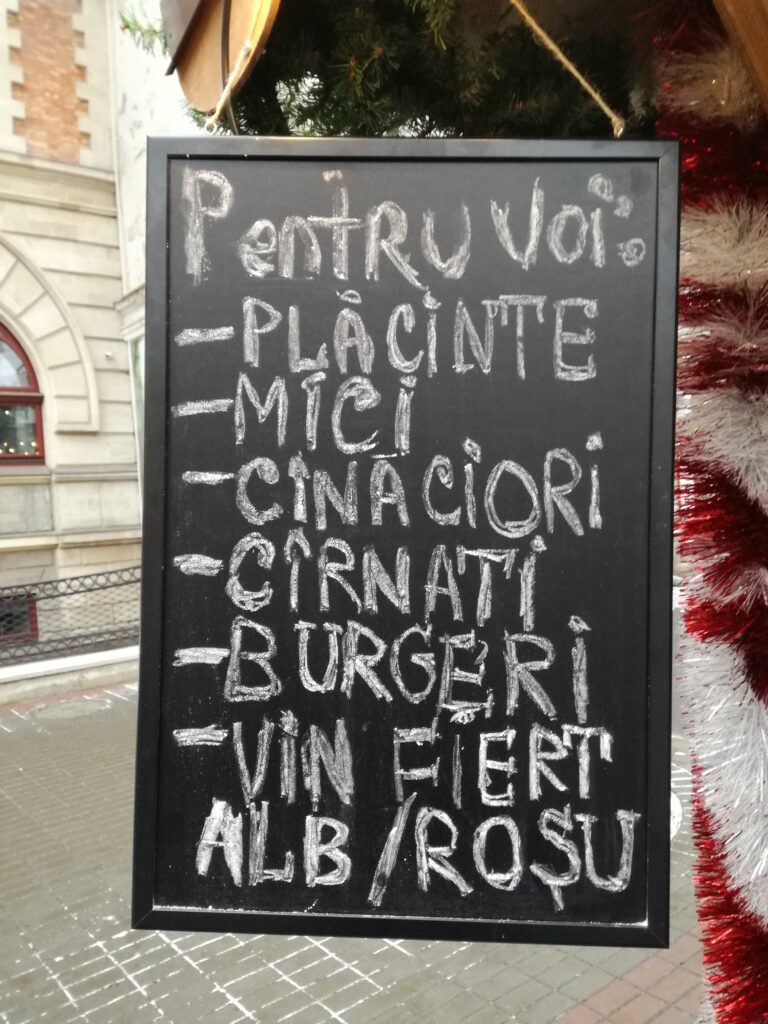 Pentru voi:
- PLĂCiNTE
- MiCi
- CÎNACiORi
- CÎRNATi
- BURGERi
- ViN FiERT
ALB / ROȘU